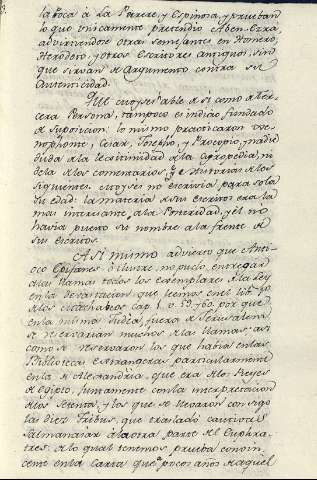 la boca à la Parere, y Espinosa, y prueban
lo que unicamente pretendio Aben-Ezra,
advirtiendose otras semejantes en Homero,
Herodoto, y otros Escritores antiguos, sin
que sirvan de argumento contra su
Autenticidad.
Que Moyses hable de sí como de ter-
cera Persona, tampoco es indicio fundado
de suposicion: lo mismo practicaron Xe-
nophonte, Cesar, Josepho, y Procopio, y nadie
duda de la legitimidad de la Cyropedia, ni
de la de los comentarios, y de Historias de los
siguientes. Moyses no escrivia para sola
su edad: la materia de sus escritos era la
mas interesante, a la Posteridad, y el no
havia puesto su nombre a la frente de
sus Escritos.
Asi mismo advierto que Anti-
oco Epifanes el ilustre, no pudo entregar
a las llamas todos los exemplares de la Ley
en la devastacion que leemos en el lib.
de los Machabeos cap. 1. v. por que
en la misma Judea, fuera de Jerusalem,
se reservarian muchos de las llamas: asi
como se reservaron los que habia en las
Bibliotecas extrangeras particularmente
en la de Alexandria, que era de los Reyes
de Egipto, juntamente con la interpretacion
de los setenta, y los que se llevaron consigo
las diez Tribus, que trasladó cautivas
Salmanasar á la otra parte del Euphra-
tes. de lo qual tenemos prueba convin-
cent en la Carta que pocos años de aquel